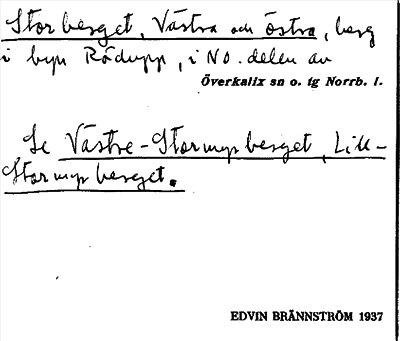 Storberget, Västra och östra, berg
i byn Rödupp, i NO. delen av
Överkalix sn o. tg Norrb. l.
Se Västre-Stormypberget, Lill-
Stormypberget.
EDVIN BRÄNNSTRÖM 1937